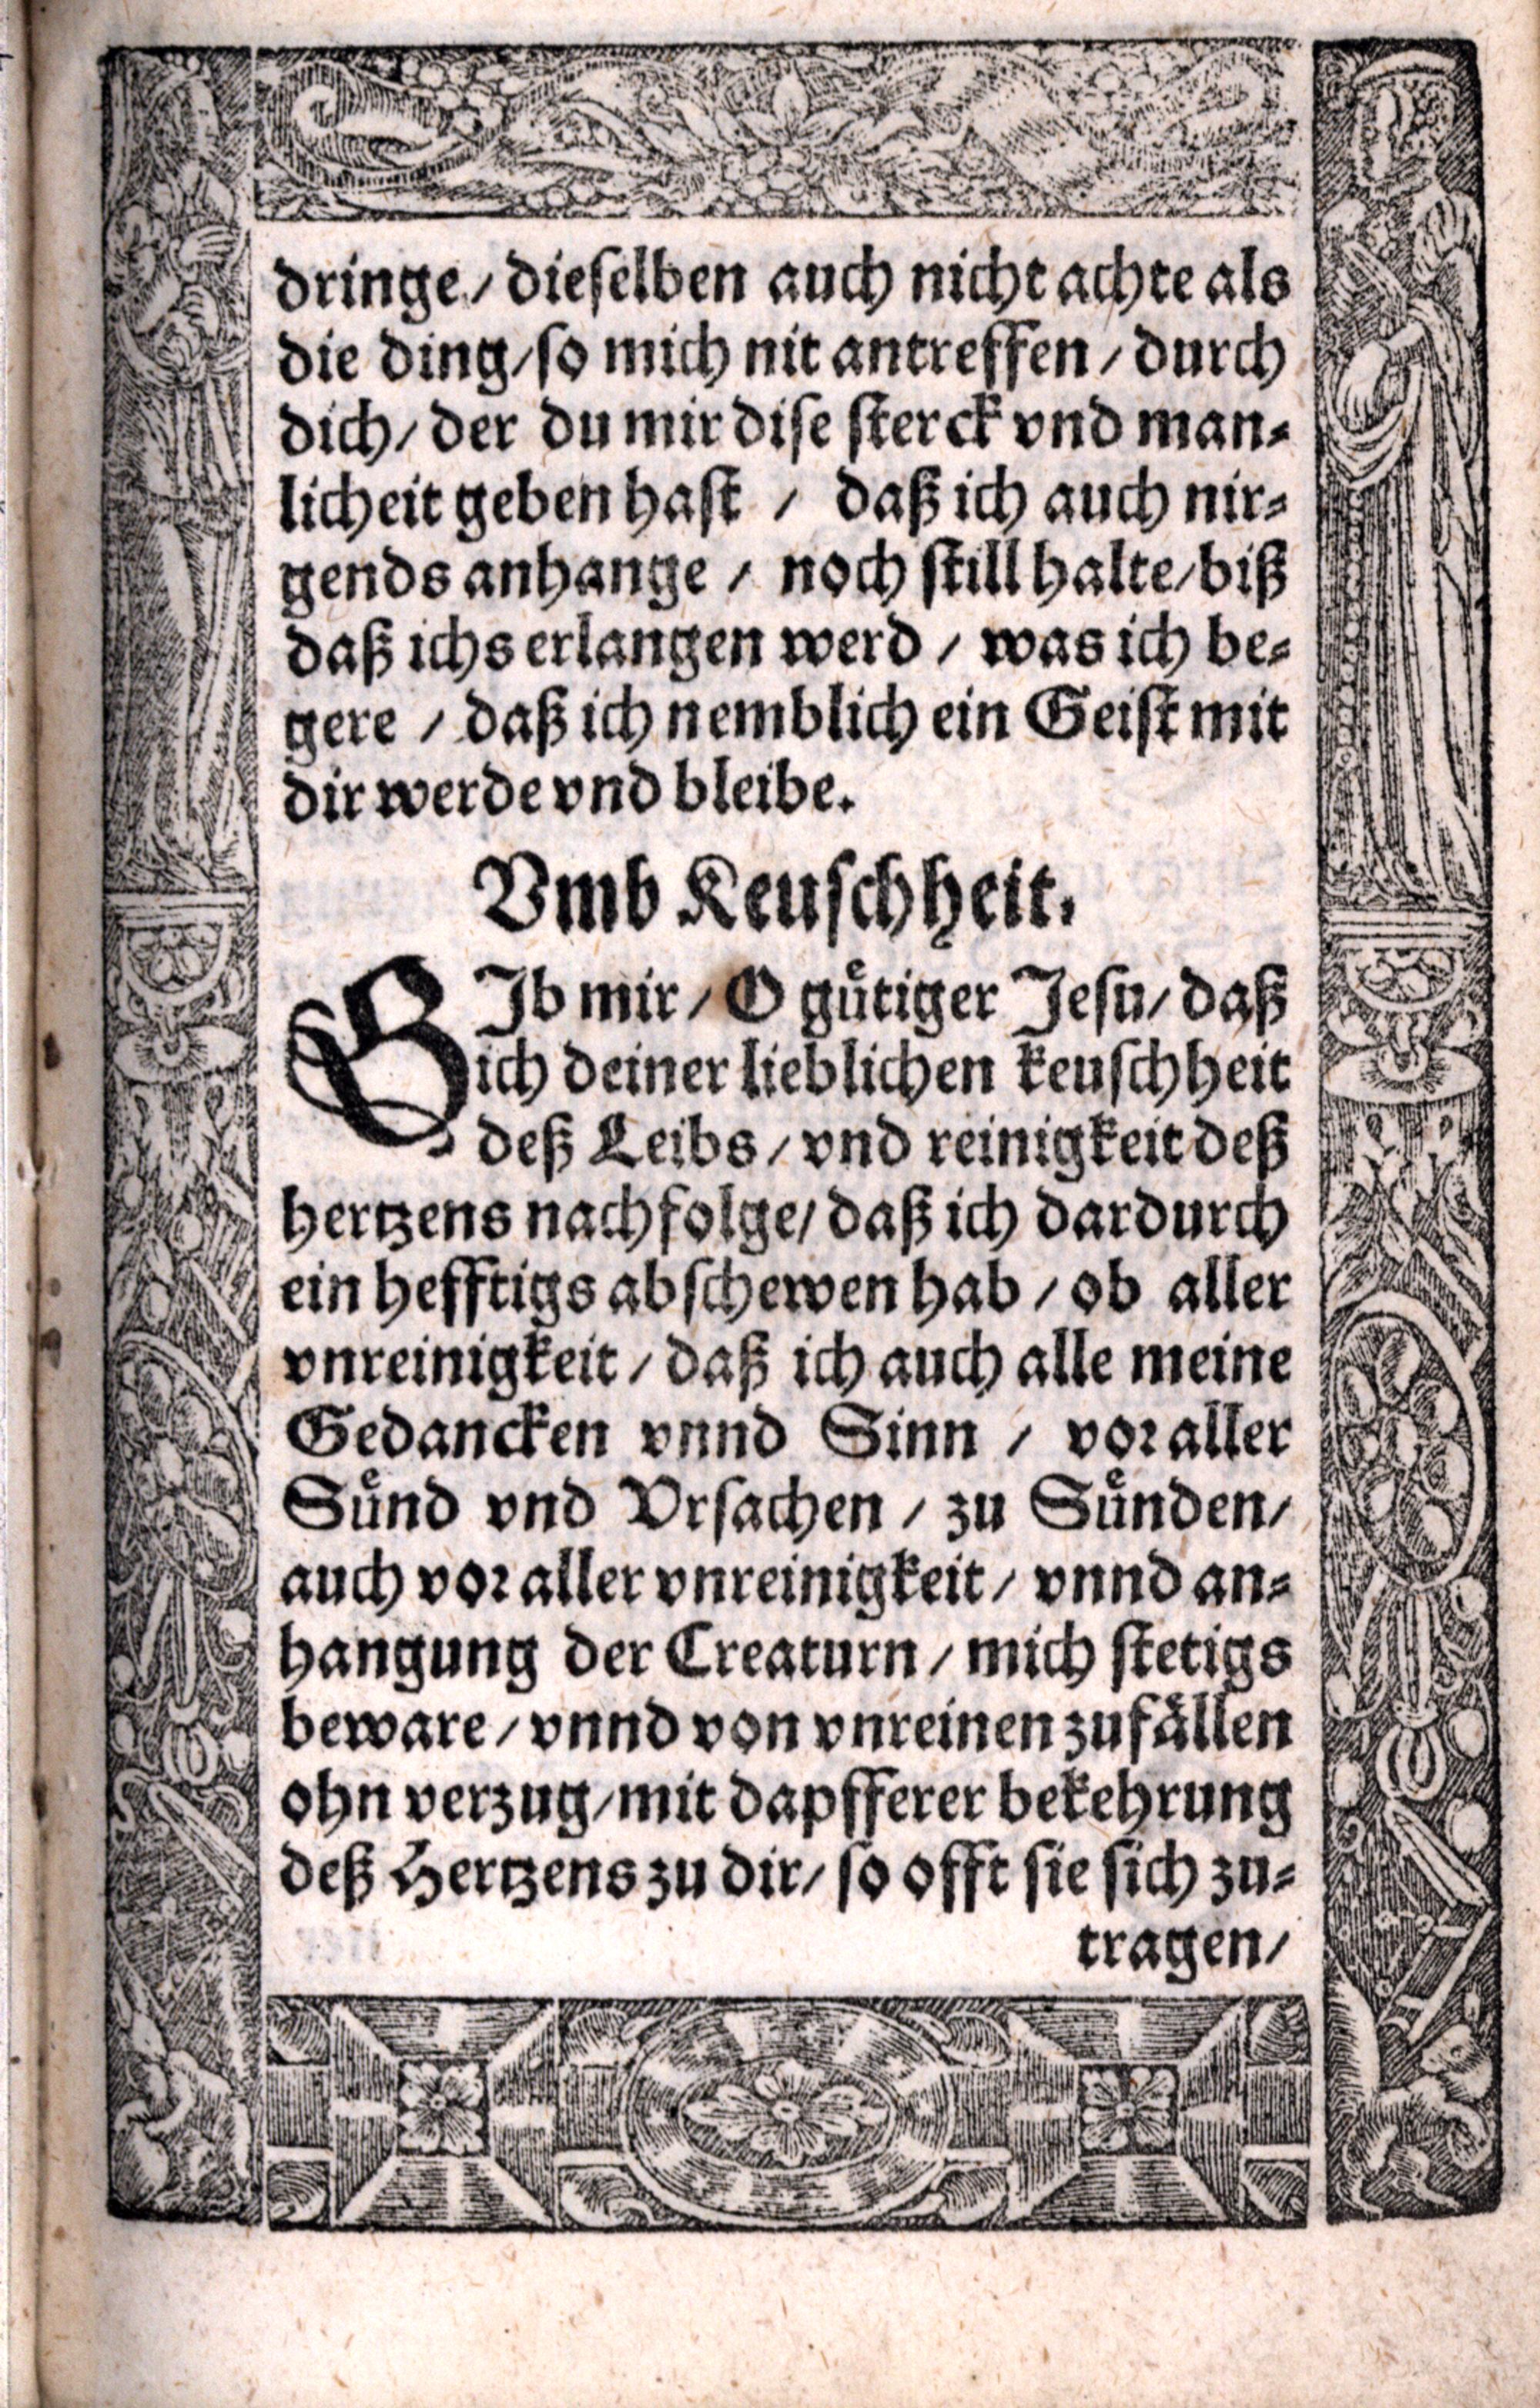 dringe / dieselben auch nicht achte als
die ding / so mich nit antreffen / durch
dich / der du mir dise sterck vnd man-
licheit geben hast / daß ich auch nir-
gends anhange / noch still halte / biß
daß ichs erlangen werd / was ich be-
gere / daß ich nemblich ein Geist mit
dir werde vnd bleibe.
Vmb Keuschheit.
GIb mir / O guͤtiger Jesu / daß
ich deiner lieblichen keuschheit
deß Leibs / vnd reinigkeit deß
hertzens nachfolge / daß ich dardurch
ein hefftigs abschewen hab / ob aller
vnreinigkeit / daß ich auch alle meine
Gedancken vnnd Sinn / vor aller
Suͤnd vnd Vrsachen / zu Suͤnden /
auch vor aller vnreinigkeit / vnnd an-
hangung der Creaturn / mich stetigs
beware / vnnd von vnreinen zufaͤllen
ohn verzug / mit dapfferer bekehrung
deß Hertzens zu dir / so offt sie sich zu-
tragen /